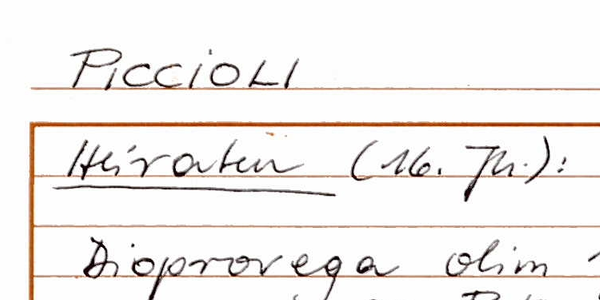 PICCIOLI
Heiraten (16. Jh.):
Dioprovega olim